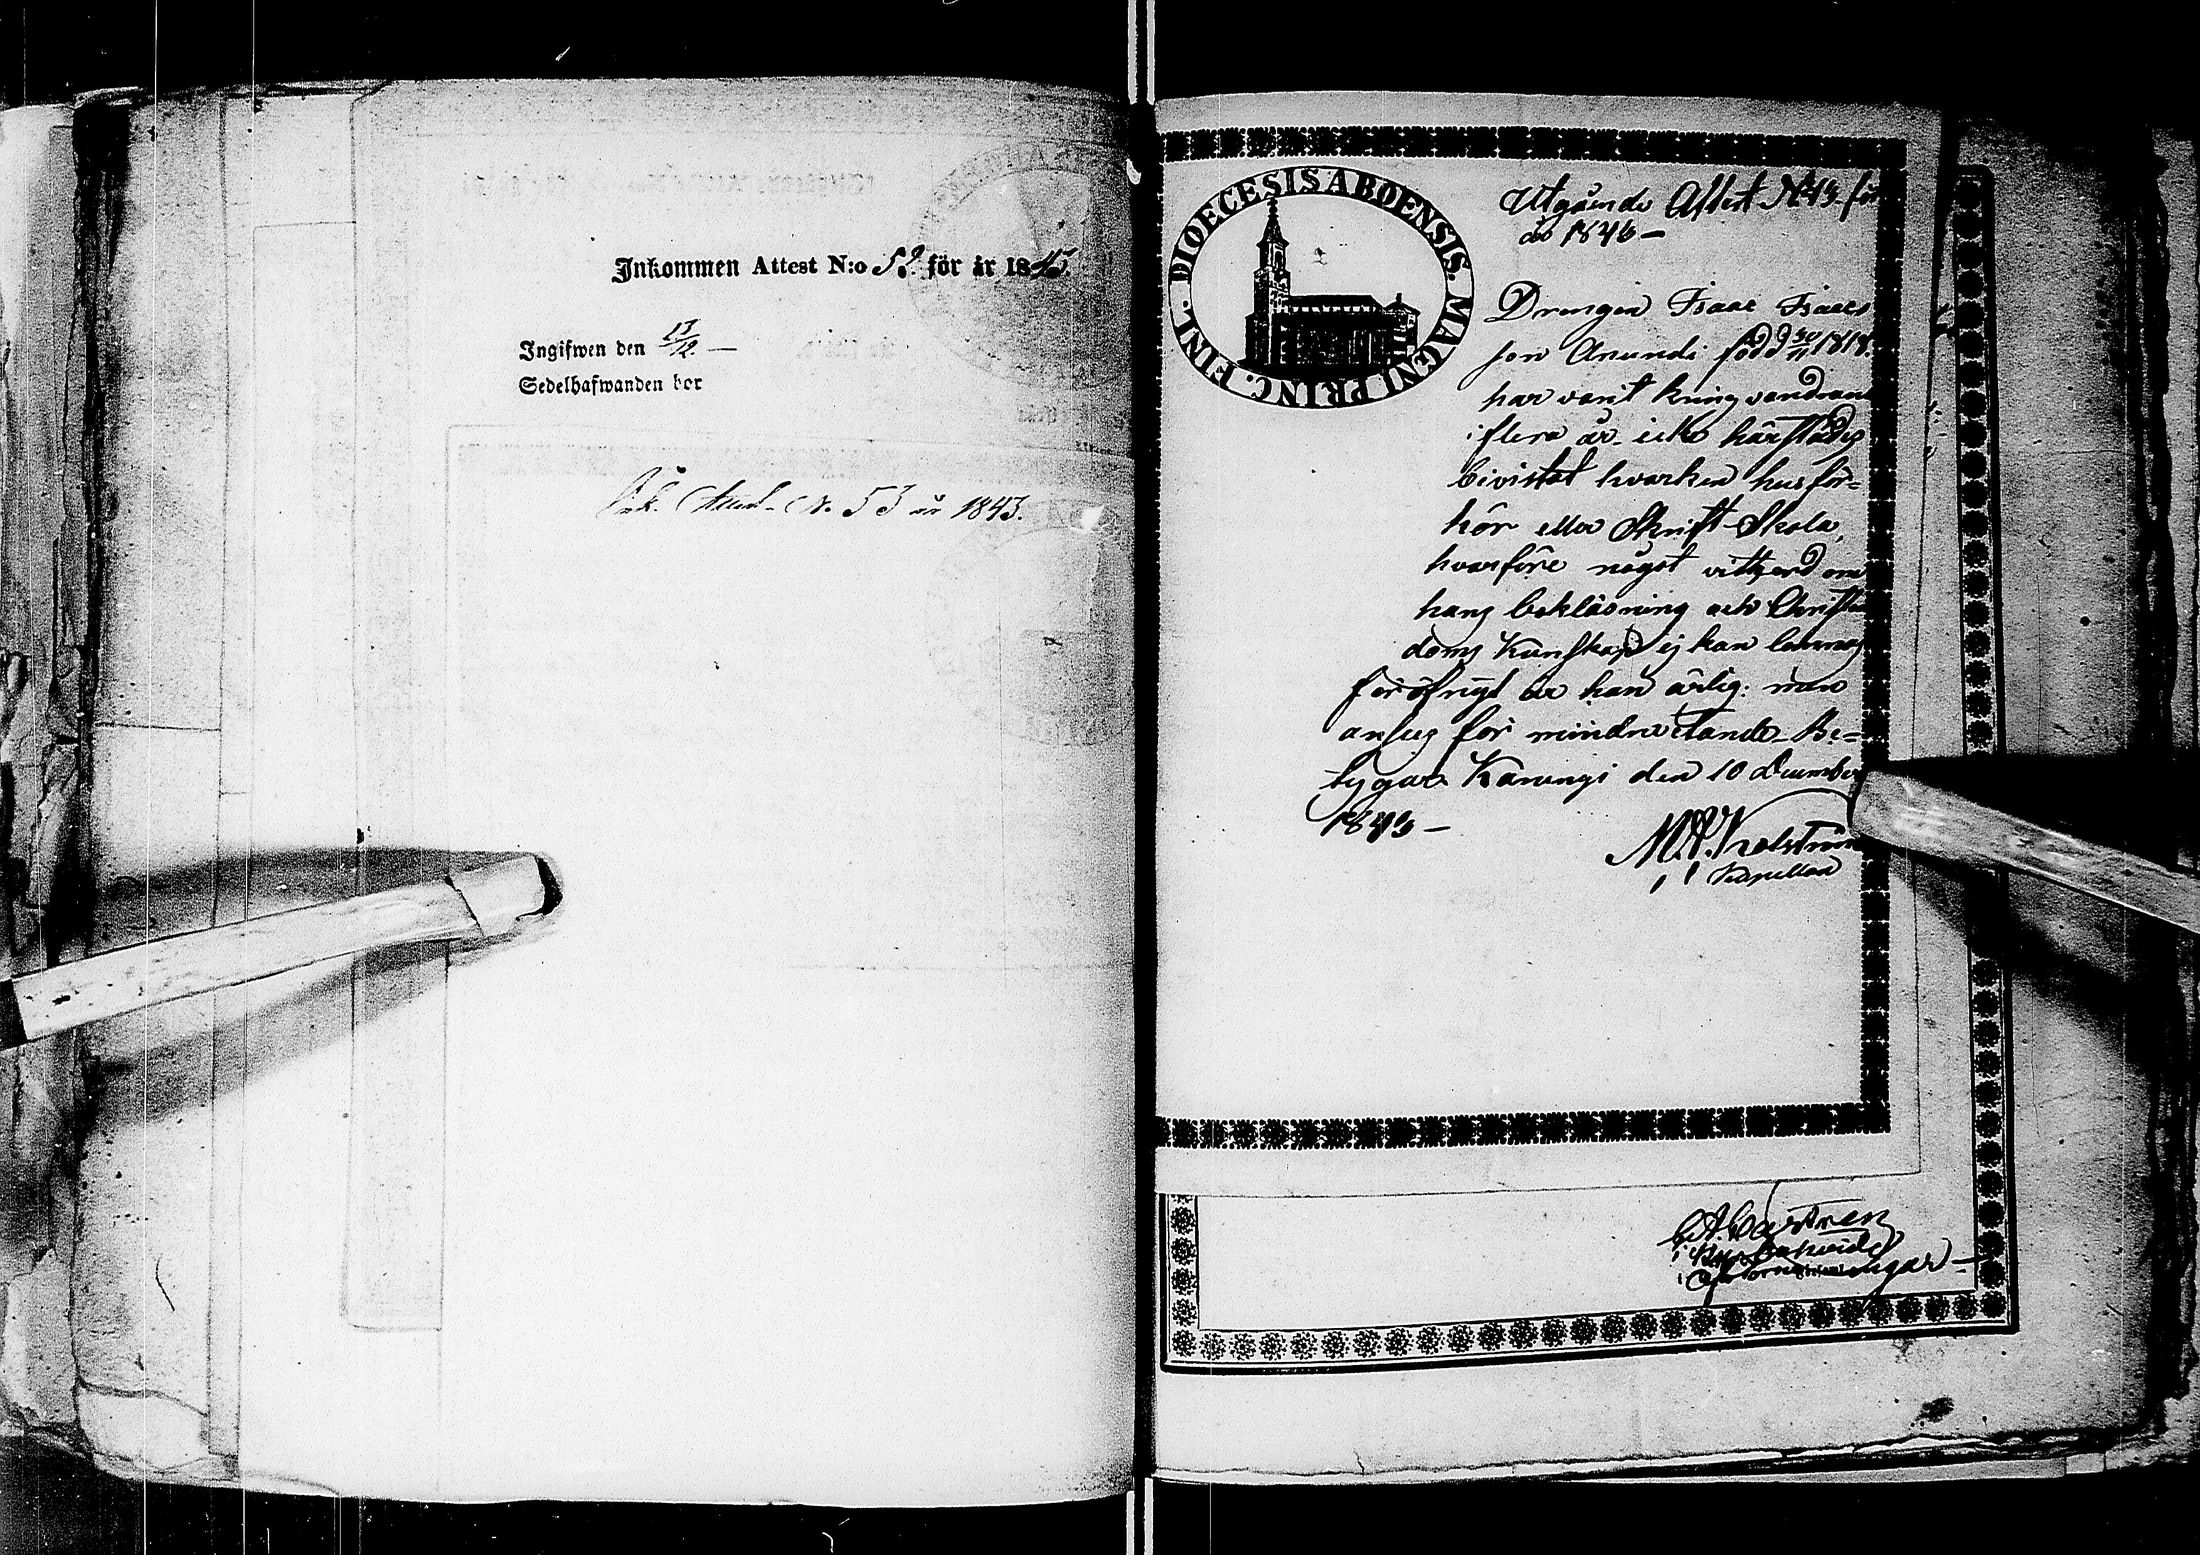 Inkommen Attest N:o 52. för år 1843.
Ingifwen den 17/12. —
Sedelhafwanden bor
Ink. Attest. N. 53 år 1843.
FINL. DIOECESIS ABOENSIS. MAGNI PRINC.
Utgående Attest No 43 för
år 1843 —
Drengen Isaac Isacs
son Anundi född 30/11 1818.
har varit kringvandrand
i flera år, icke härstädes
bivistat hvarken husför=
hör eller Skrift-Skola,
hvarföre något vittnord om
hans bekläsning och Christen
doms Kunskap ej kan lemnas
för öfrigt är han ärlig: men
anses för mindre vetande. Be=
tygar Karungi den 10 December
1843 —
Kapellan
C. A. Castren